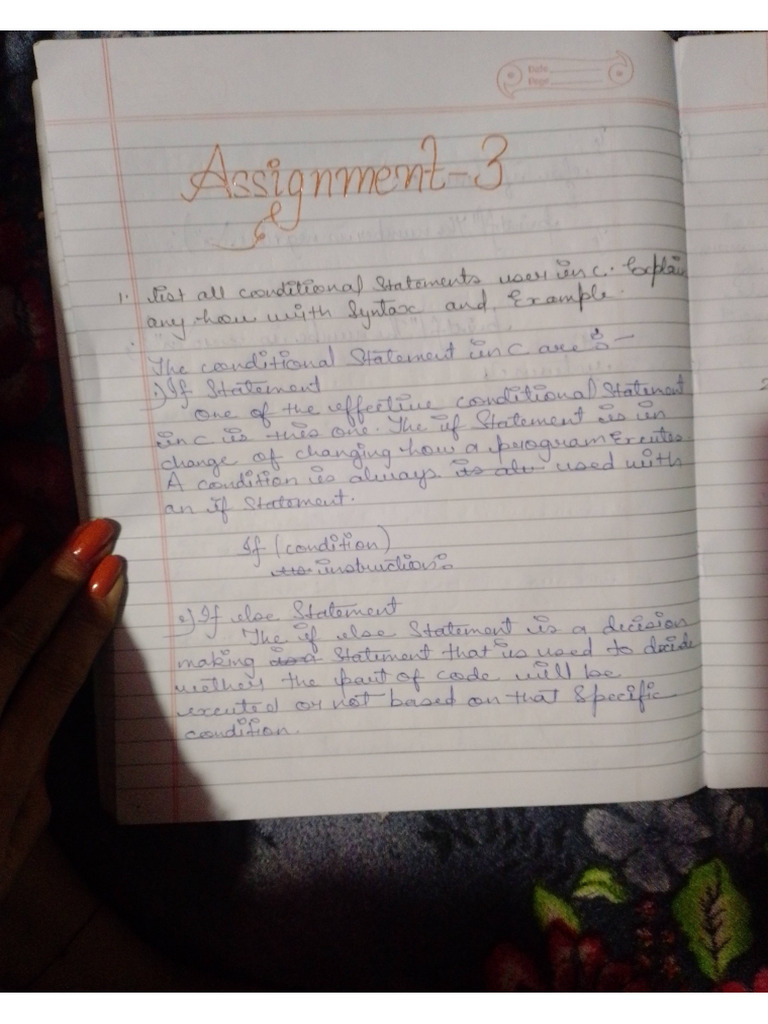 Date
Page
Assignment-3
1. List all conditional Statements user in c. Explain
any how with Syntax and Example.
The conditional Statement in c are :-
1) If Statement
One of the effective conditional Statement
in c is this one. The if Statement is in
change of changing how a program Executes
A condition is always used with
an if Statement.
If (condition)
instruction:
2) If else Statement
The if else Statement is a decision
making Statement that is used to decide
wether the part of code will be
executed or not based on that Specific
condition.